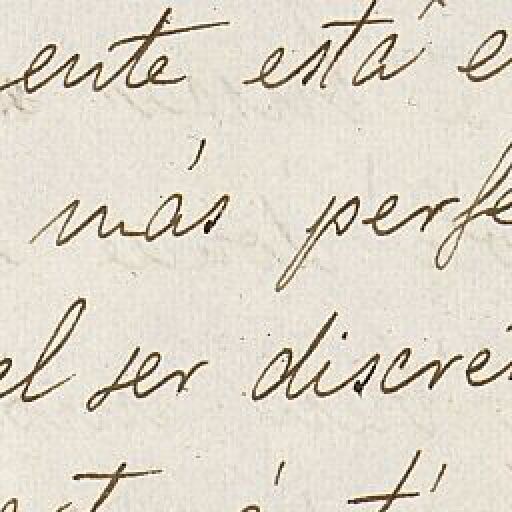 ente está e
más perfe
el ser discre